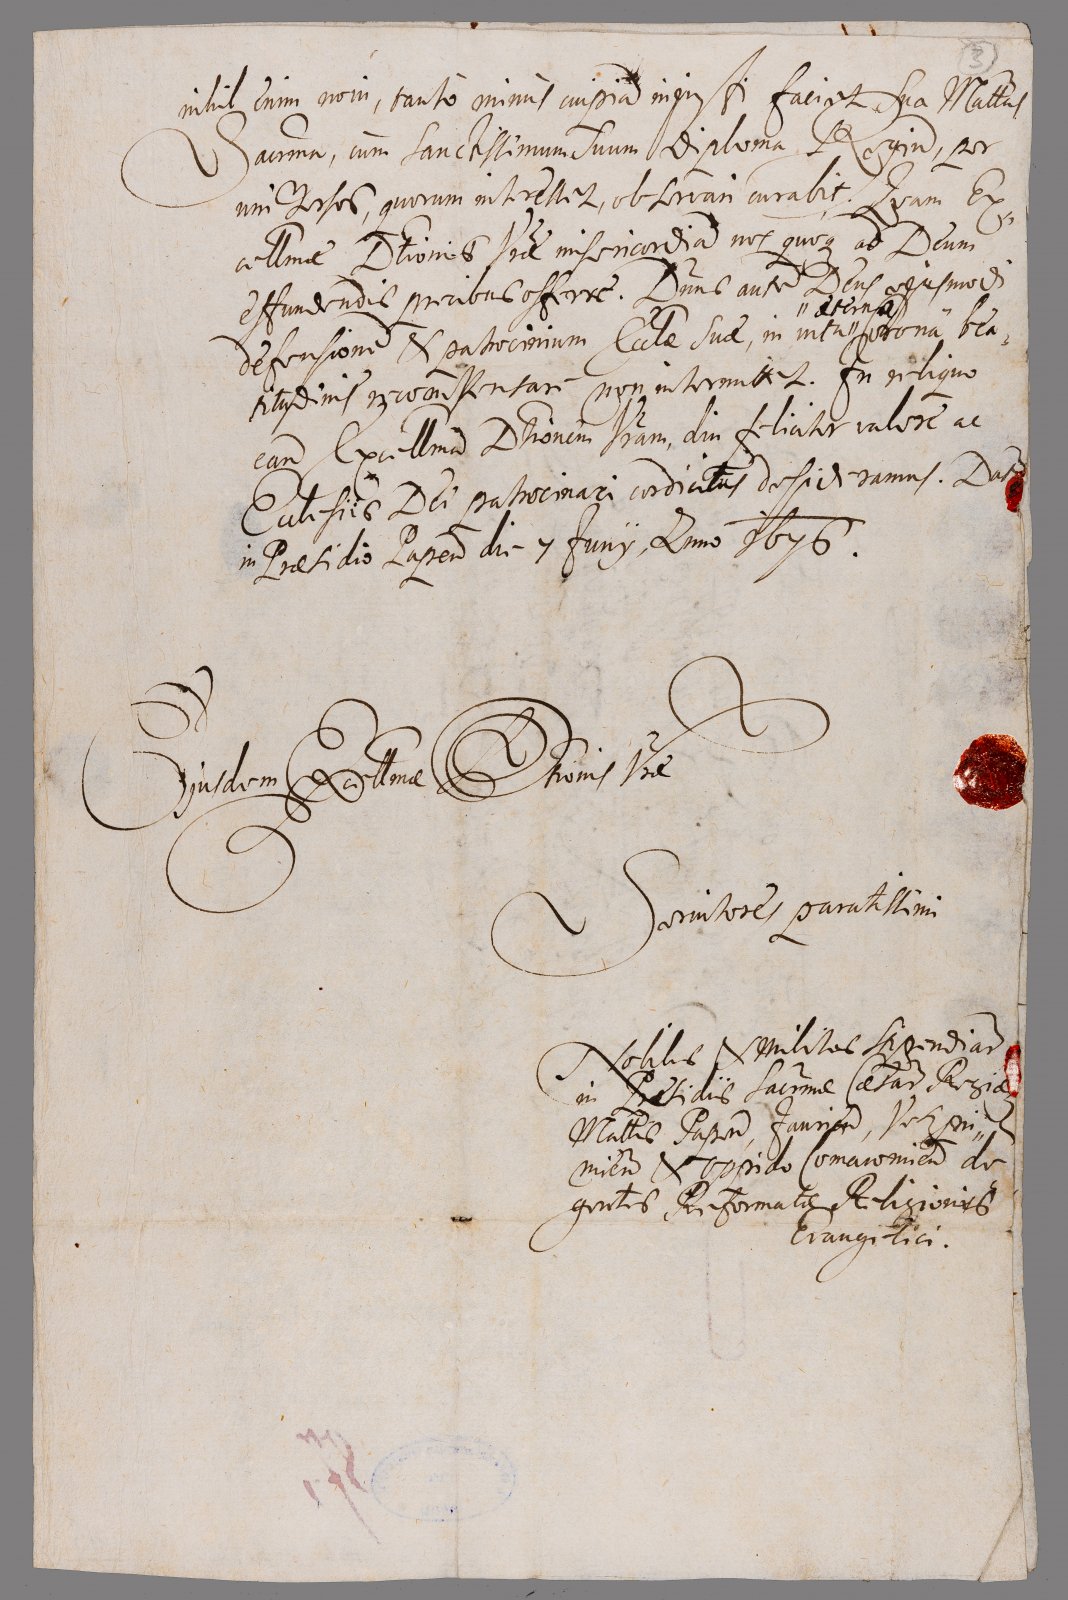 3
nihil enim novi, tanto minus cuipiã injusti faciet Sua Mattas
Sacrma, cum Sanctissimum Suum diploma Regiũ, per
universos, quorum interesset, observari curabit. Quam Ex-
cellmæ Dtionis Vræ misericordiã nos quoq ad Deum
effundendis precibus offerre. Dnus autẽ Deus ejusmodi
defensionẽ & patrocinium Eccliæ Suæ, in vitæ "æternæ" corona bea-
titudinis recompensare non intermittet. In reliquo
eand Excellmã Dtionem Vram, diu feliciter valere ac
Ecclesiis Dei patrocinari cordicitus desideramus. Dat
in Præsidio Papen die 7 Junij, Anno 1676.
Ejusdem Excellmæ Dtionis Vræ
Servitores paratissimi
Nobiles & Milites Stipendiar
in Præsidiis Sacrmæ Cæsar Regiæ
Mattis Papen, Jaurien, Veszpri-
mien & oppido Comaromien de
gentes Reformatæ Religionis
Evangelici.